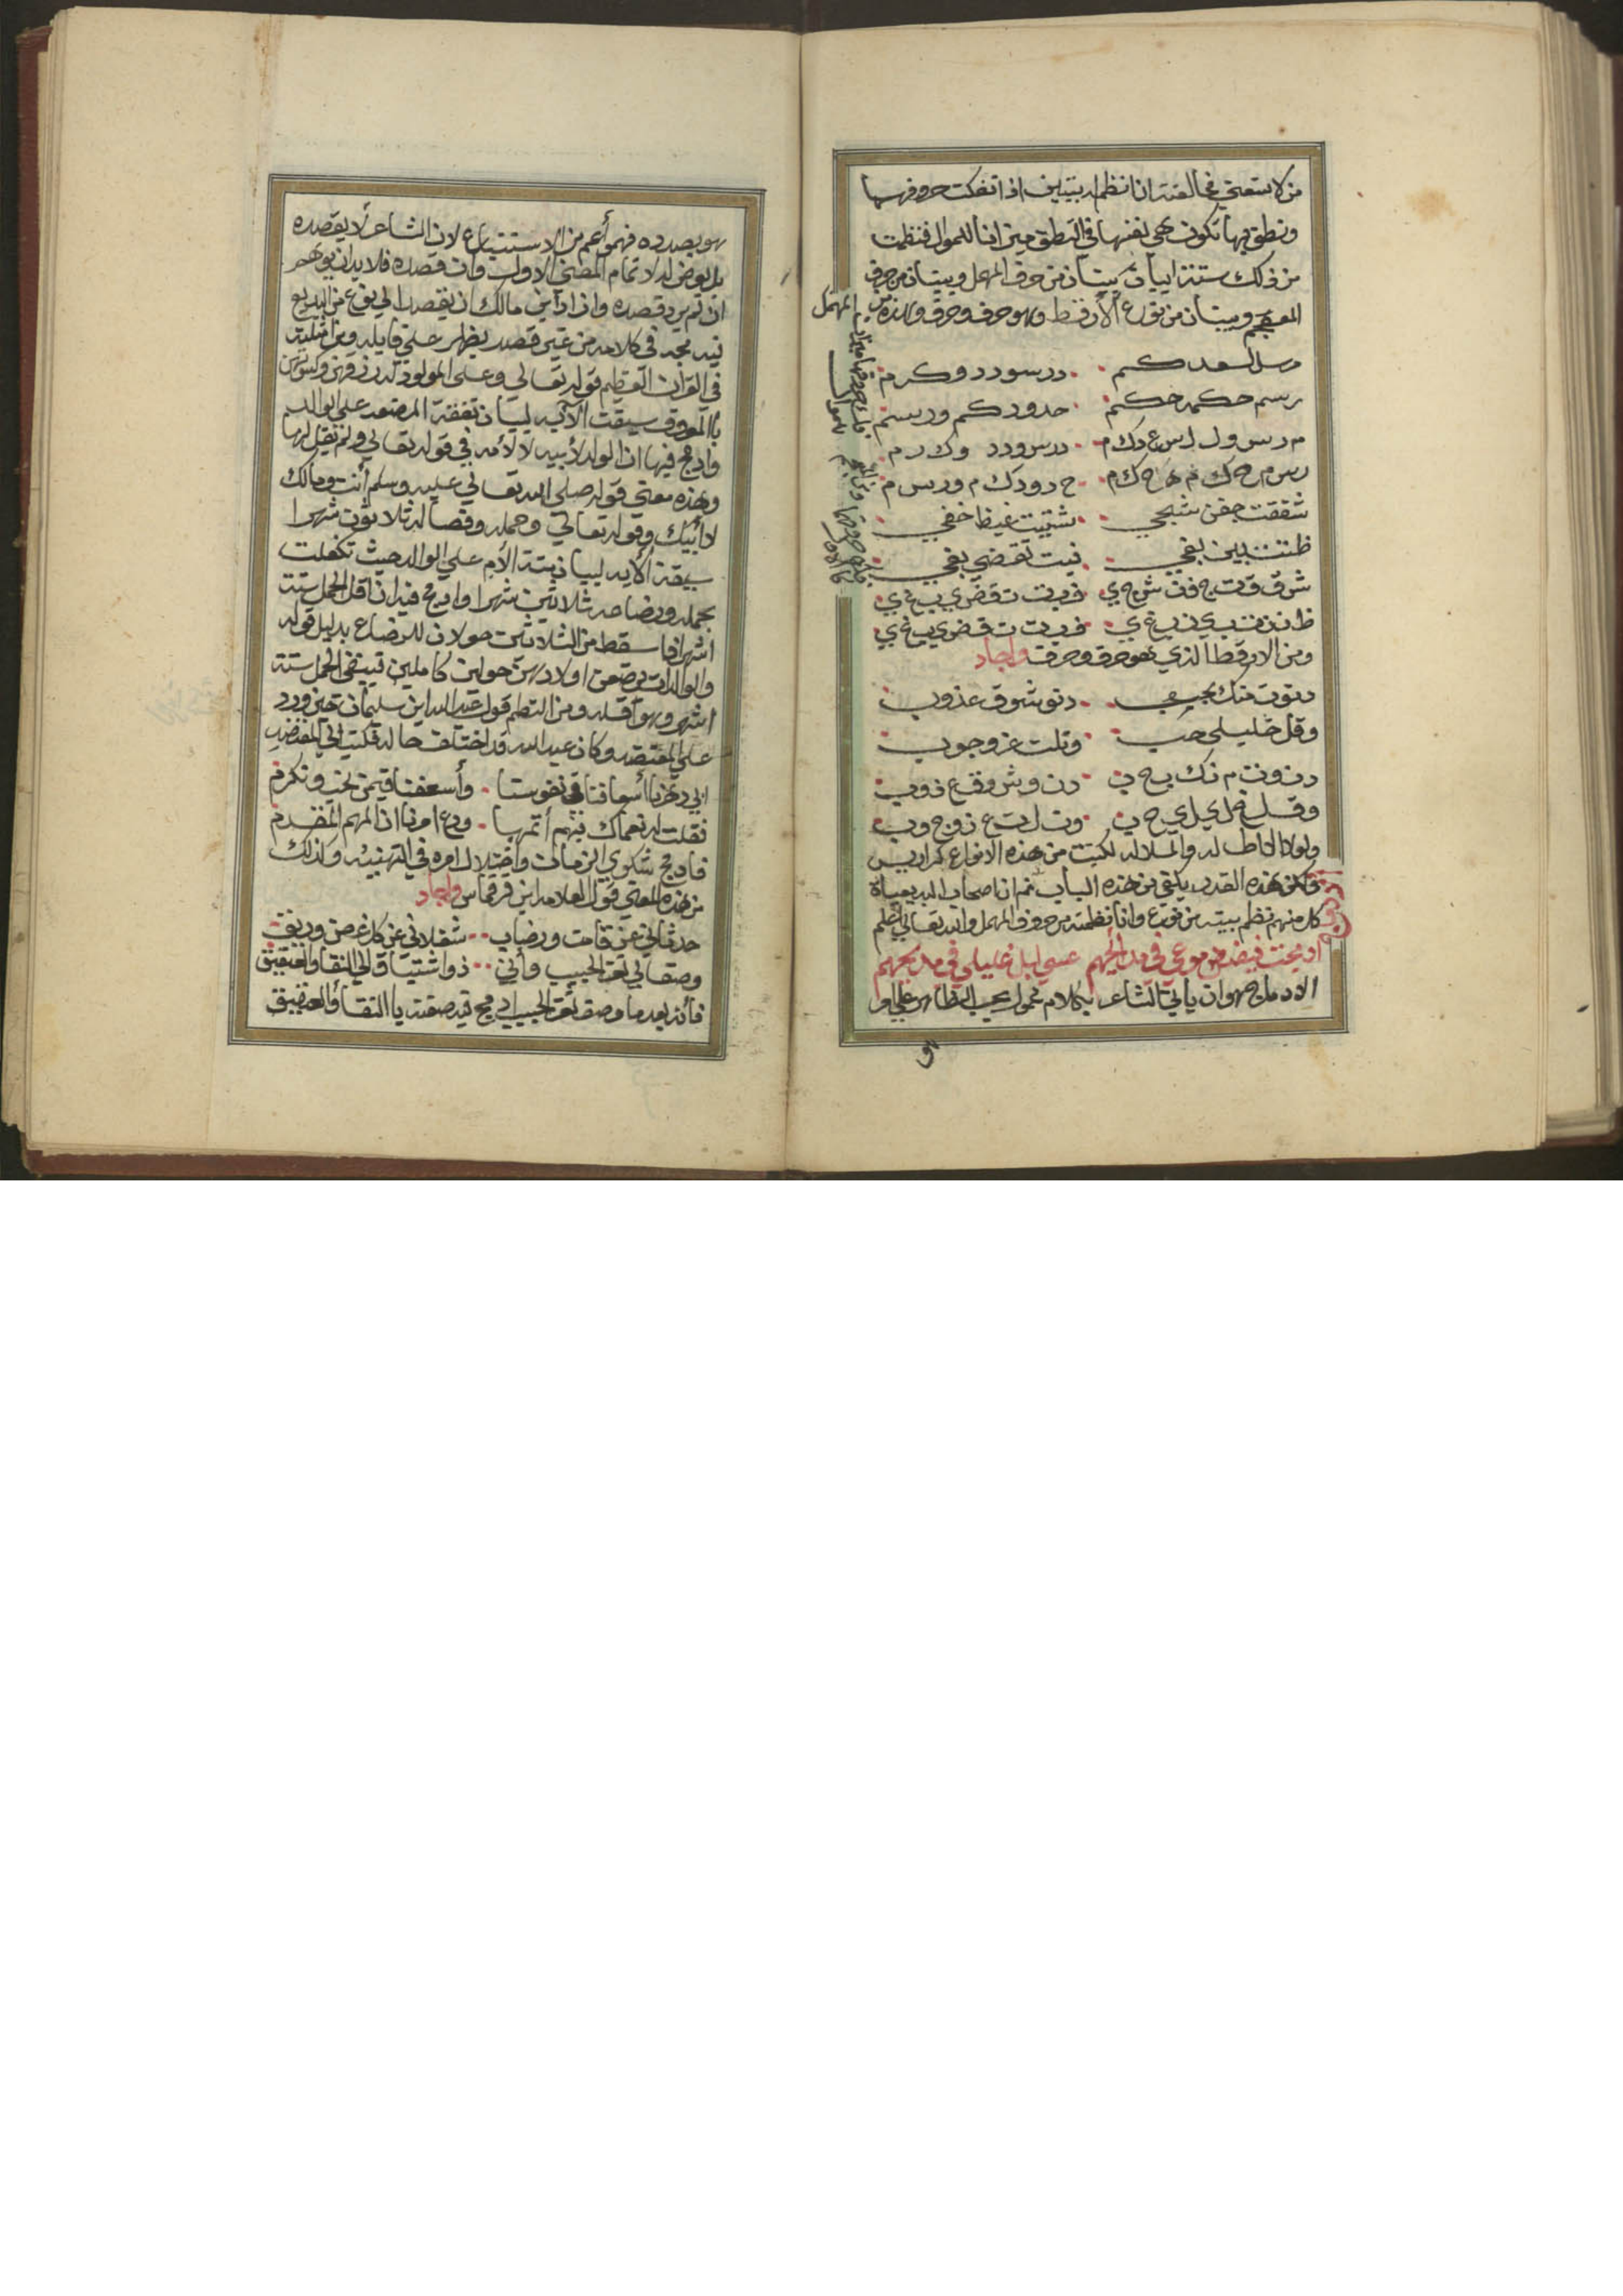 من لا تسعني مخالفته ان انظم له بيتين اذا تفكت حروفهما
ونطق بها تكون هي نفسها في النطق ميزانا للموال فنظمت
من ذلك ستة ابيات بيتان من حرف المهمل وبيتان من حرف
المعجم وبيتان من نوع الارقط وهو حرف وحرف وهذه من المهمل
رسم حكمه حكم حدودكم ورسم
م رس ول ل س ع دك م درس ودد وك رم
رس م ح ك م ه ح ك م ح دودك م ورس م
شففت جفن شجي بشتيت غيظ خفي
ظننت بين بغي نيت تقضي بغي
ش ف ف ت ج ف ن ش ج ي
ظ ن ن ت ب ي ن ب غ ي ن ي ت ت ق ض ي ب غ ي
ومن الارقط الذي هو حرف وحرف واجاد
دنوت منك بجيبي دنو شوق عذوب
وقل خليلي حب وتلت عز وجوب
دن وت م نك ب ج ي ب ي دن وش وق ع ذوب
وق ل خ ل ي ل ي ح ب وت ل ت ع زوج وب
ولولا الاطاله والملاله لكتبت من هذه الانواع كراريس
ولكن هذه القدر يكفي من هذه الباب ثم ان اصحاب البديعياة
كل منهم نظم بيته من نوع وانا نظمته من حروف المهمل والله تعالى اعلم
ادمجت فيض دموعي في مدائحهم عسى ابل غليلي في مديحهم
الادماج هو ان ياتي الشاعر بكلام محمول بحسب الظاهر على امر
هو بصدده فهو أعم من الاستتباع لان الشاعر لا يقصده
بل يعرض له لاتمام المعنى الاول وان قصده فلا بد ان يوهم
ان لم يرد قصده وان اراد ابن مالك ان يقصد الى نوع من البديع
فيدمجه في كلامه من غير قصد يظهر حتى قايله ومن امثلته
في القران العظيم قوله تعالى وعلى المولود له رزقهن وكسوتهن
بالمعروف سيقت الآيه لبيان نفقة المرضعه على الوالد
وادمج فيها ان الولد لأبيه لا لأمه في قوله تعالى ولم يقل لها
وهذه معنى قوله صلى الله تعالى عليه وسلم أنت ومالك
لأبيك وقوله تعالى وحمله وفصاله ثلاثون شهرا
سيقة الأيه لبيان منة الأم على الوالد حيث تكفلت
بحمله ورضاعه ثلاثين شهرا وادمج فيه ان اقل الحمل ستة
اشهر اذا سقط من الثلاثين حولان للرضاع بدليل قوله
والوالدات يرضعن اولادهن حولين كاملين فيبقى الحمل ستة
اشهر وهو اقله ومن النظم قول عبد الله ابن سليمان حين ورد
على المعتضد وكان عبيد الله قد اختلف حاله فكتب الى المعتضد
ابى دهرنا اسعافنا في نفوسنا وأسعفنا فيمن نحب ونكرم
فقلت له نعماك فيهم أتمها ودع امرنا ان المهم المقدم
فادمج شكوى الزمان واختلال امره في التهنيه وكذلك
من هذه المعنى قول العلامه ابن قرقماس واجاد
حدثاني عن قامت ورضاب شغلاني عن كل غصن وريق
وصفا لي ثغر الحبيب وأني ذو اشتياق الى النقا والعقيق
فأنه بعد ما وصف ثغر الحبيب ادمج فيه صفته بالنقا والعقيق